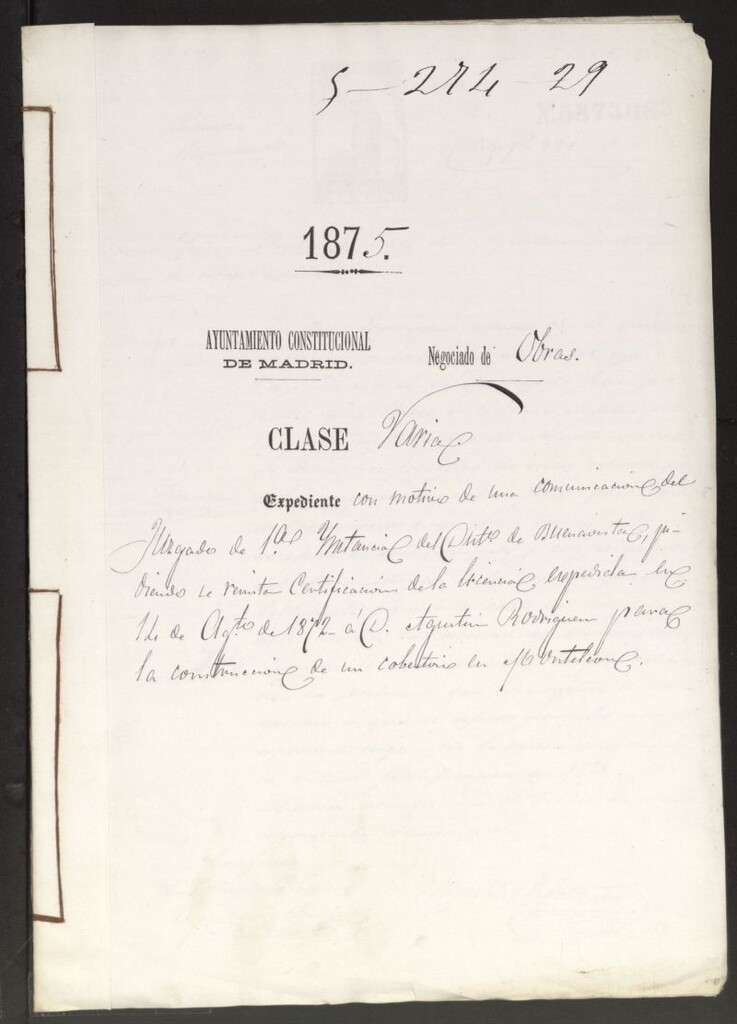 5-274-29
1875.
AYUNTAMIENTO CONSTITUCIONAL
DE MADRID.
Negociado de Obras.
CLASE Varia
Expediente con motivo de una comunicacion del
Juzgado de 1ª Ynstancia del Dist.º de Buenavista, pi-
diendo se remita Certificacion de la licencia espedida en
14 de Agto de 1872 á D. Agustin Rodriguez para
la construccion de un cobertizo en Monteleon.